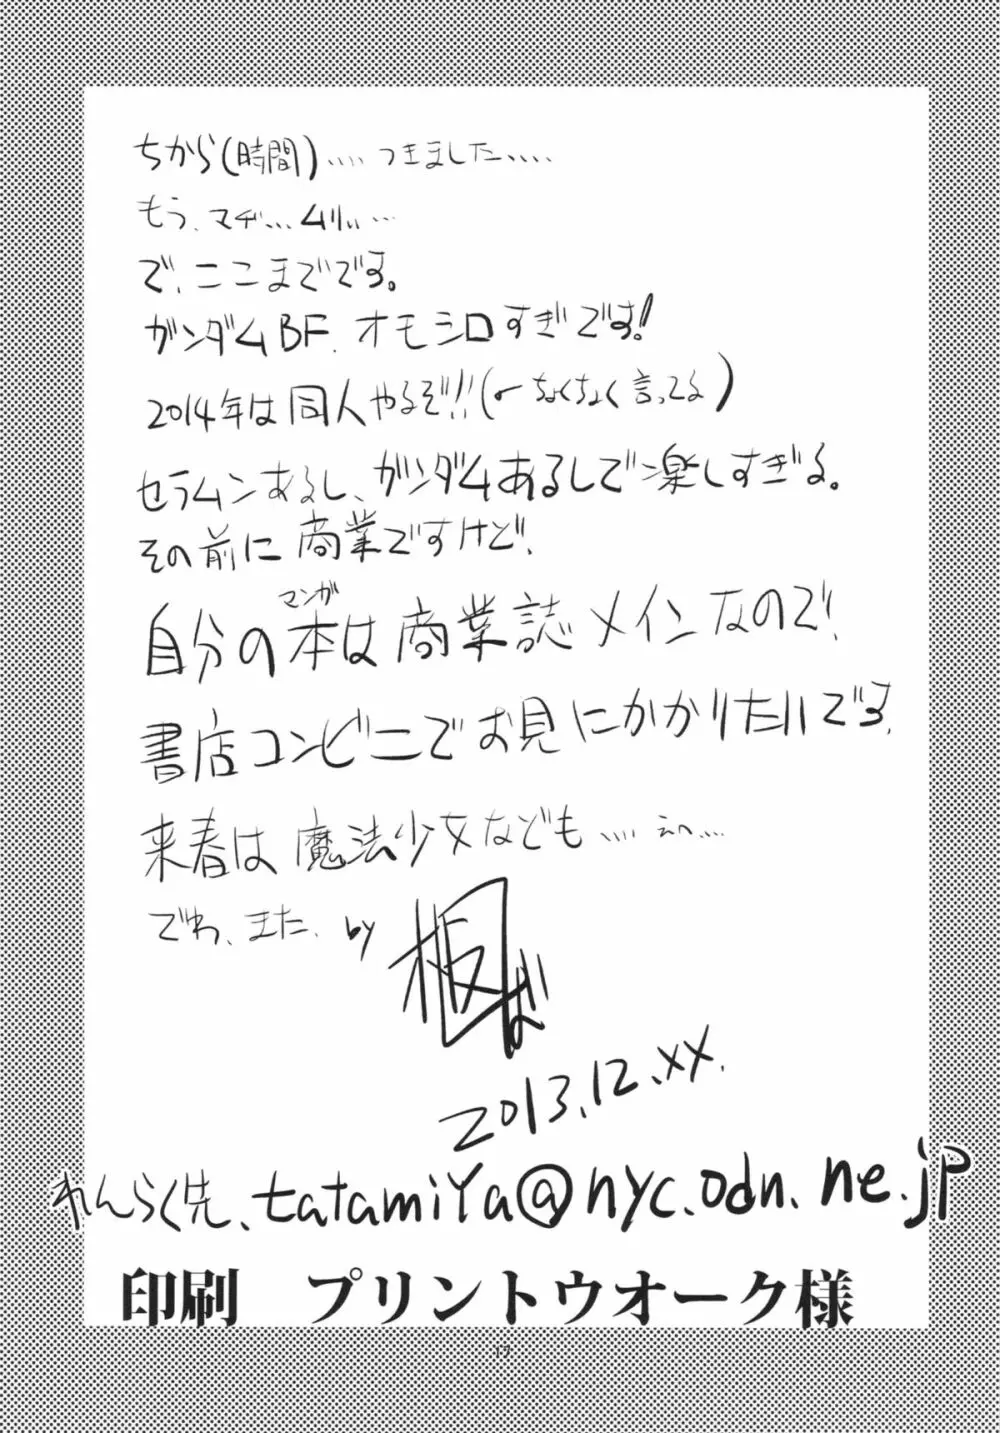 ちから(時間)‥‥つきました‥‥
もう、マヂ…ムリぃ…
で、ここまでです。
ガンダムBF.オモシロすぎです!
2014年は同人やるぞ!!(←ちょくちょく言ってる)
セラムンあるし、ガンダムあるしで楽しすぎる。
その前に商業ですけど!
マンガ
自分の本は商業誌メインなので!
書店コンビニでお見にかかりたいです.
来春は魔法少女なども‥‥えへ‥‥
でわ、また. by
2013.12.XX.
れんらく先、tatamiya@nyc.odn.ne.jp
印刷　プリントウオーク様
17